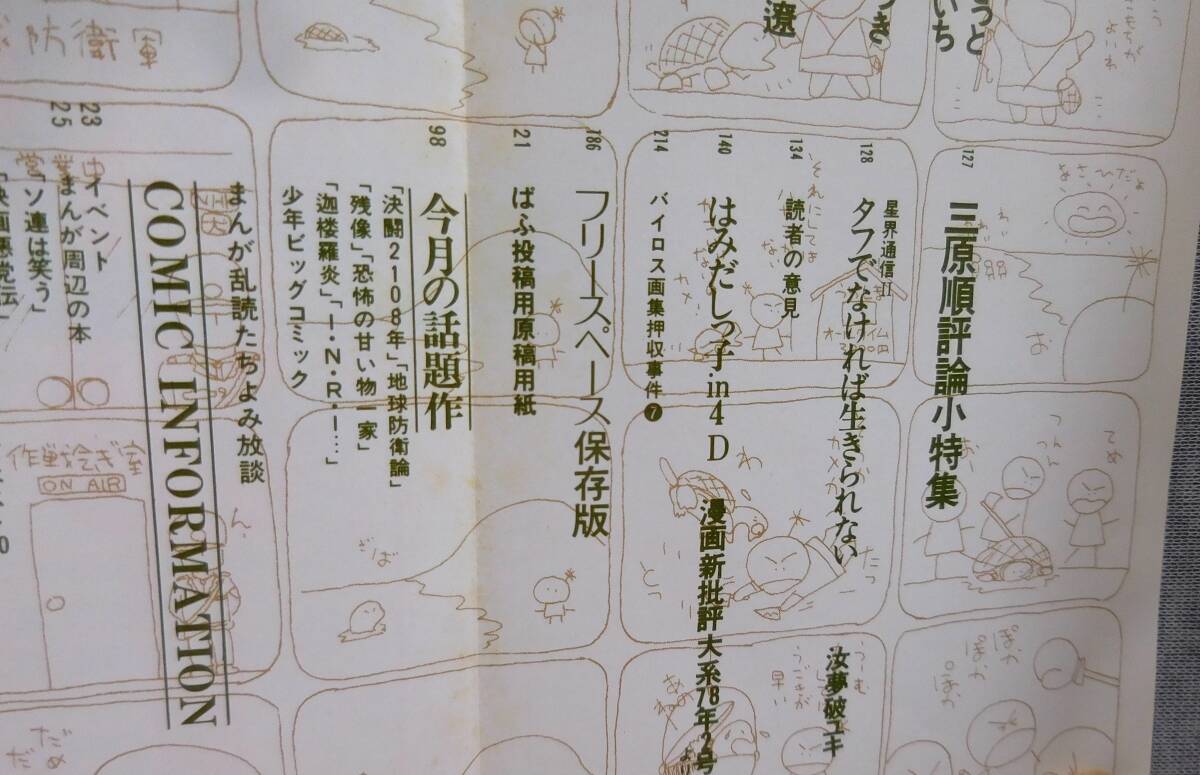 うと
いち
つき
遼
127
三原順評論小特集
128
星界通信II
タフでなければ生きられない
汝夢破ユキ
134
読者の意見
140
はみだしっ子・in4D
漫画新批評大系78年2号
より
214
バイロス画集押収事件❼
186
フリースペース保存版
21
ぱふ投稿用原稿用紙
98
今月の話題作
「決闘2108年」「地球防衛論」
「残像」「恐怖の甘い物一家」
「迦楼羅炎」「I・N・R・I…」
少年ビッグコミック
まんが乱読たちよみ放談
COMIC INFORMATION
23
イベント
25
まんが周辺の本
「ソ連は笑う」
「映画悪党伝」
防衛軍
営業中
作戦会ぎ室
ON AIR
なさひだよ
お
それにしても
ざば
てめ
つん
つん
お
たっ
と
ん
ぽか
ぽか
ぽか
早い
だめ
だめ